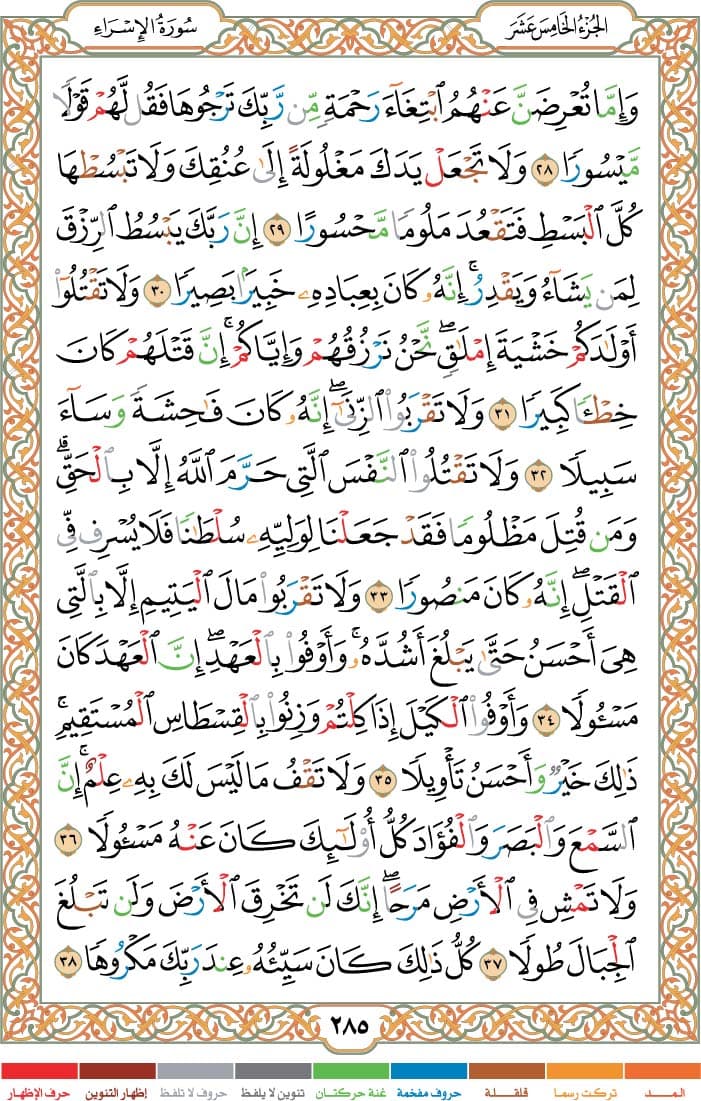 الجُزْءُ الخَامِسَ عَشَرَ
سُورَةُ الإِسْرَاءِ
وَإِمَّا تُعْرِضَنَّ عَنْهُمُ ٱبْتِغَآءَ رَحْمَةٍ مِّن رَّبِّكَ تَرْجُوهَا فَقُل لَّهُمْ قَوْلًا
مَّيْسُورًا ٢٨ وَلَا تَجْعَلْ يَدَكَ مَغْلُولَةً إِلَىٰ عُنُقِكَ وَلَا تَبْسُطْهَا
كُلَّ ٱلْبَسْطِ فَتَقْعُدَ مَلُومًا مَّحْسُورًا ٢٩ إِنَّ رَبَّكَ يَبْسُطُ ٱلرِّزْقَ
لِمَن يَشَآءُ وَيَقْدِرُ ۚ إِنَّهُۥ كَانَ بِعِبَادِهِۦ خَبِيرًۢا بَصِيرًا ٣٠ وَلَا تَقْتُلُوٓا۟
أَوْلَٰدَكُمْ خَشْيَةَ إِمْلَٰقٍ ۖ نَّحْنُ نَرْزُقُهُمْ وَإِيَّاكُمْ ۚ إِنَّ قَتْلَهُمْ كَانَ
خِطْـًٔا كَبِيرًا ٣١ وَلَا تَقْرَبُوا۟ ٱلزِّنَىٰٓ ۖ إِنَّهُۥ كَانَ فَٰحِشَةً وَسَآءَ
سَبِيلًا ٣٢ وَلَا تَقْتُلُوا۟ ٱلنَّفْسَ ٱلَّتِى حَرَّمَ ٱللَّهُ إِلَّا بِٱلْحَقِّ ۗ
وَمَن قُتِلَ مَظْلُومًا فَقَدْ جَعَلْنَا لِوَلِيِّهِۦ سُلْطَٰنًا فَلَا يُسْرِف فِّى
ٱلْقَتْلِ ۖ إِنَّهُۥ كَانَ مَنصُورًا ٣٣ وَلَا تَقْرَبُوا۟ مَالَ ٱلْيَتِيمِ إِلَّا بِٱلَّتِى
هِىَ أَحْسَنُ حَتَّىٰ يَبْلُغَ أَشُدَّهُۥ ۚ وَأَوْفُوا۟ بِٱلْعَهْدِ ۖ إِنَّ ٱلْعَهْدَ كَانَ
مَسْـُٔولًا ٣٤ وَأَوْفُوا۟ ٱلْكَيْلَ إِذَا كِلْتُمْ وَزِنُوا۟ بِٱلْقِسْطَاسِ ٱلْمُسْتَقِيمِ ۚ
ذَٰلِكَ خَيْرٌ وَأَحْسَنُ تَأْوِيلًا ٣٥ وَلَا تَقْفُ مَا لَيْسَ لَكَ بِهِۦ عِلْمٌ ۚ إِنَّ
ٱلسَّمْعَ وَٱلْبَصَرَ وَٱلْفُؤَادَ كُلُّ أُو۟لَٰٓئِكَ كَانَ عَنْهُ مَسْـُٔولًا ٣٦
وَلَا تَمْشِ فِى ٱلْأَرْضِ مَرَحًا ۖ إِنَّكَ لَن تَخْرِقَ ٱلْأَرْضَ وَلَن تَبْلُغَ
ٱلْجِبَالَ طُولًا ٣٧ كُلُّ ذَٰلِكَ كَانَ سَيِّئُهُۥ عِندَ رَبِّكَ مَكْرُوهًا ٣٨
٢٨٥
المـــد تركت رسما قلقـلـة حروف مفخمة غنة حركتان تنوين لا يلفظ حروف لا تلفظ إظهار التنوين حرف الإظهار